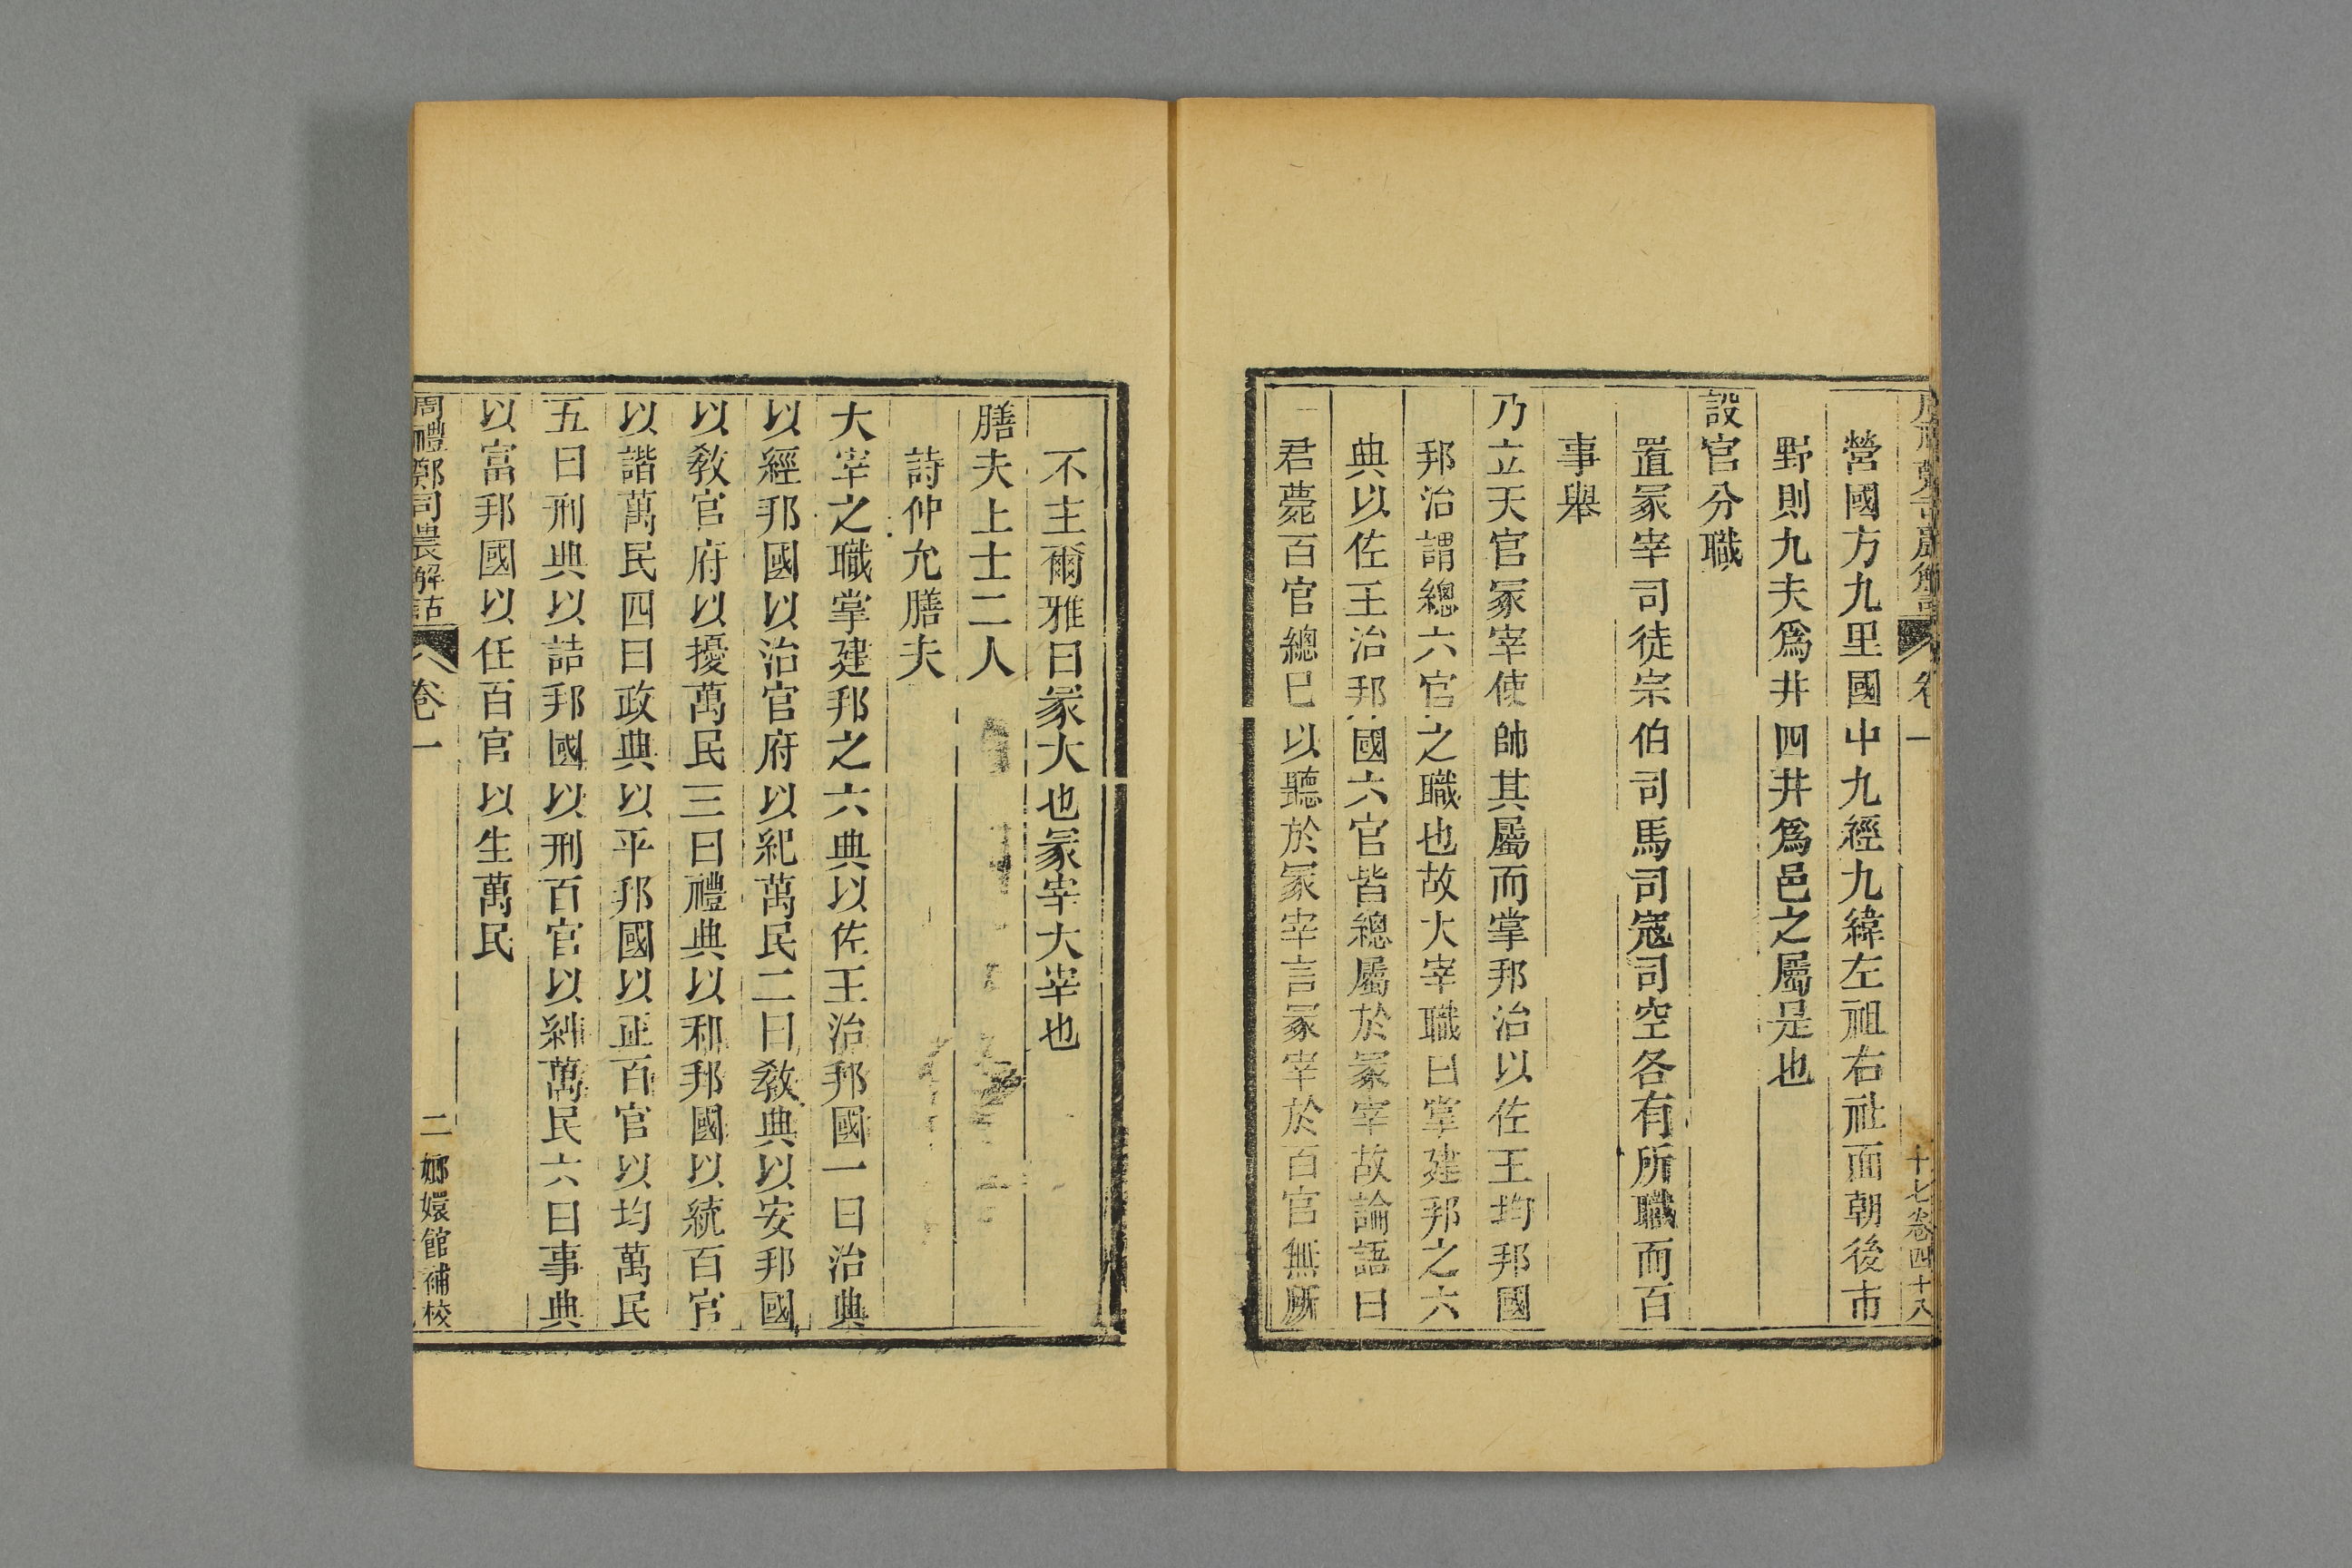 卷一
十七卷四十八
營國方九里國中九經九緯左祖右社面朝後市
野則九夫爲井四井爲邑之屬是也
設官分職
置冡宰司徒宗伯司馬司寇司空各有所職而百
事舉
乃立天官冡宰使帥其屬而掌邦治以佐王均邦國
邦治謂總六官之職也故大宰職曰掌建邦之六
典以佐王治邦國六官皆總屬於冡宰故論語曰
君薨百官總已以聽於冡宰言冡宰於百官無所
不主爾雅曰冡大也冡宰大宰也
膳夫上士二人
詩仲允膳夫
大宰之職掌建邦之六典以佐王治邦國一曰治典
以經邦國以治官府以紀萬民二曰敎典以安邦國
以敎官府以擾萬民三曰禮典以和邦國以統百官
以諧萬民四曰政典以平邦國以正百官以均萬民
五曰刑典以詰邦國以刑百官以糾萬民六曰事典
以富邦國以任百官以生萬民
周禮鄭司農解詁
卷一
二
嫏嬛館補校